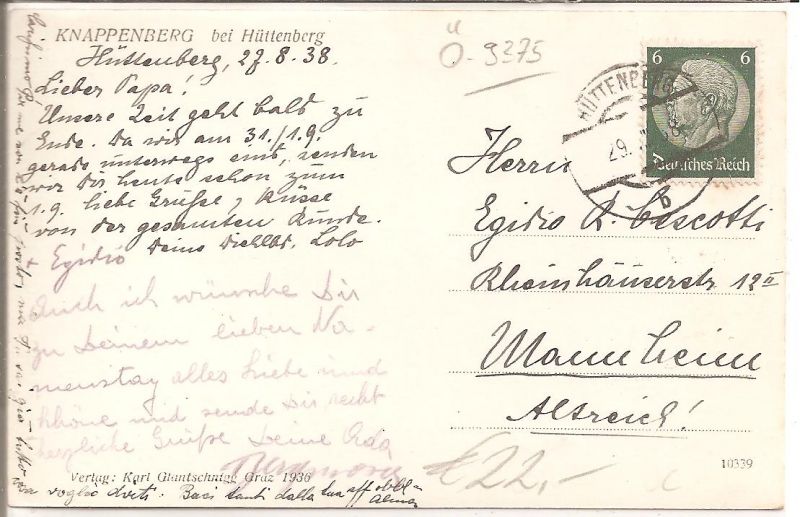 KNAPPENBERG bei Hüttenberg
Hüttenberg, 27.8.38.
Lieber Papa!
Unsere Zeit geht bald zu
Ende. Da wir am 31./1.9.
gerade unterwegs sind, senden
wir Dir heute schon zum
1.9. liebe Grüße, Küsse
von der gesamten Runde.
Deine Lolo
+ Egidio
Auch ich wünsche Dir
zu Deinem lieben Na-
menstag alles Liebe und
Schöne und sende Dir recht
herzliche Grüße Deine Ada
Verlag: Karl Glantschnigg Graz 1936
voglio dirti. Baci tanti dalla tua aff
Ü
O-9375
6 6
Deutsches Reich
HÜTTENBERG
29.
b
Herrn
Egidio R. Cescotti
Rheinhäuserstr 12II
Mannheim
Altreich!
€22,-
10339